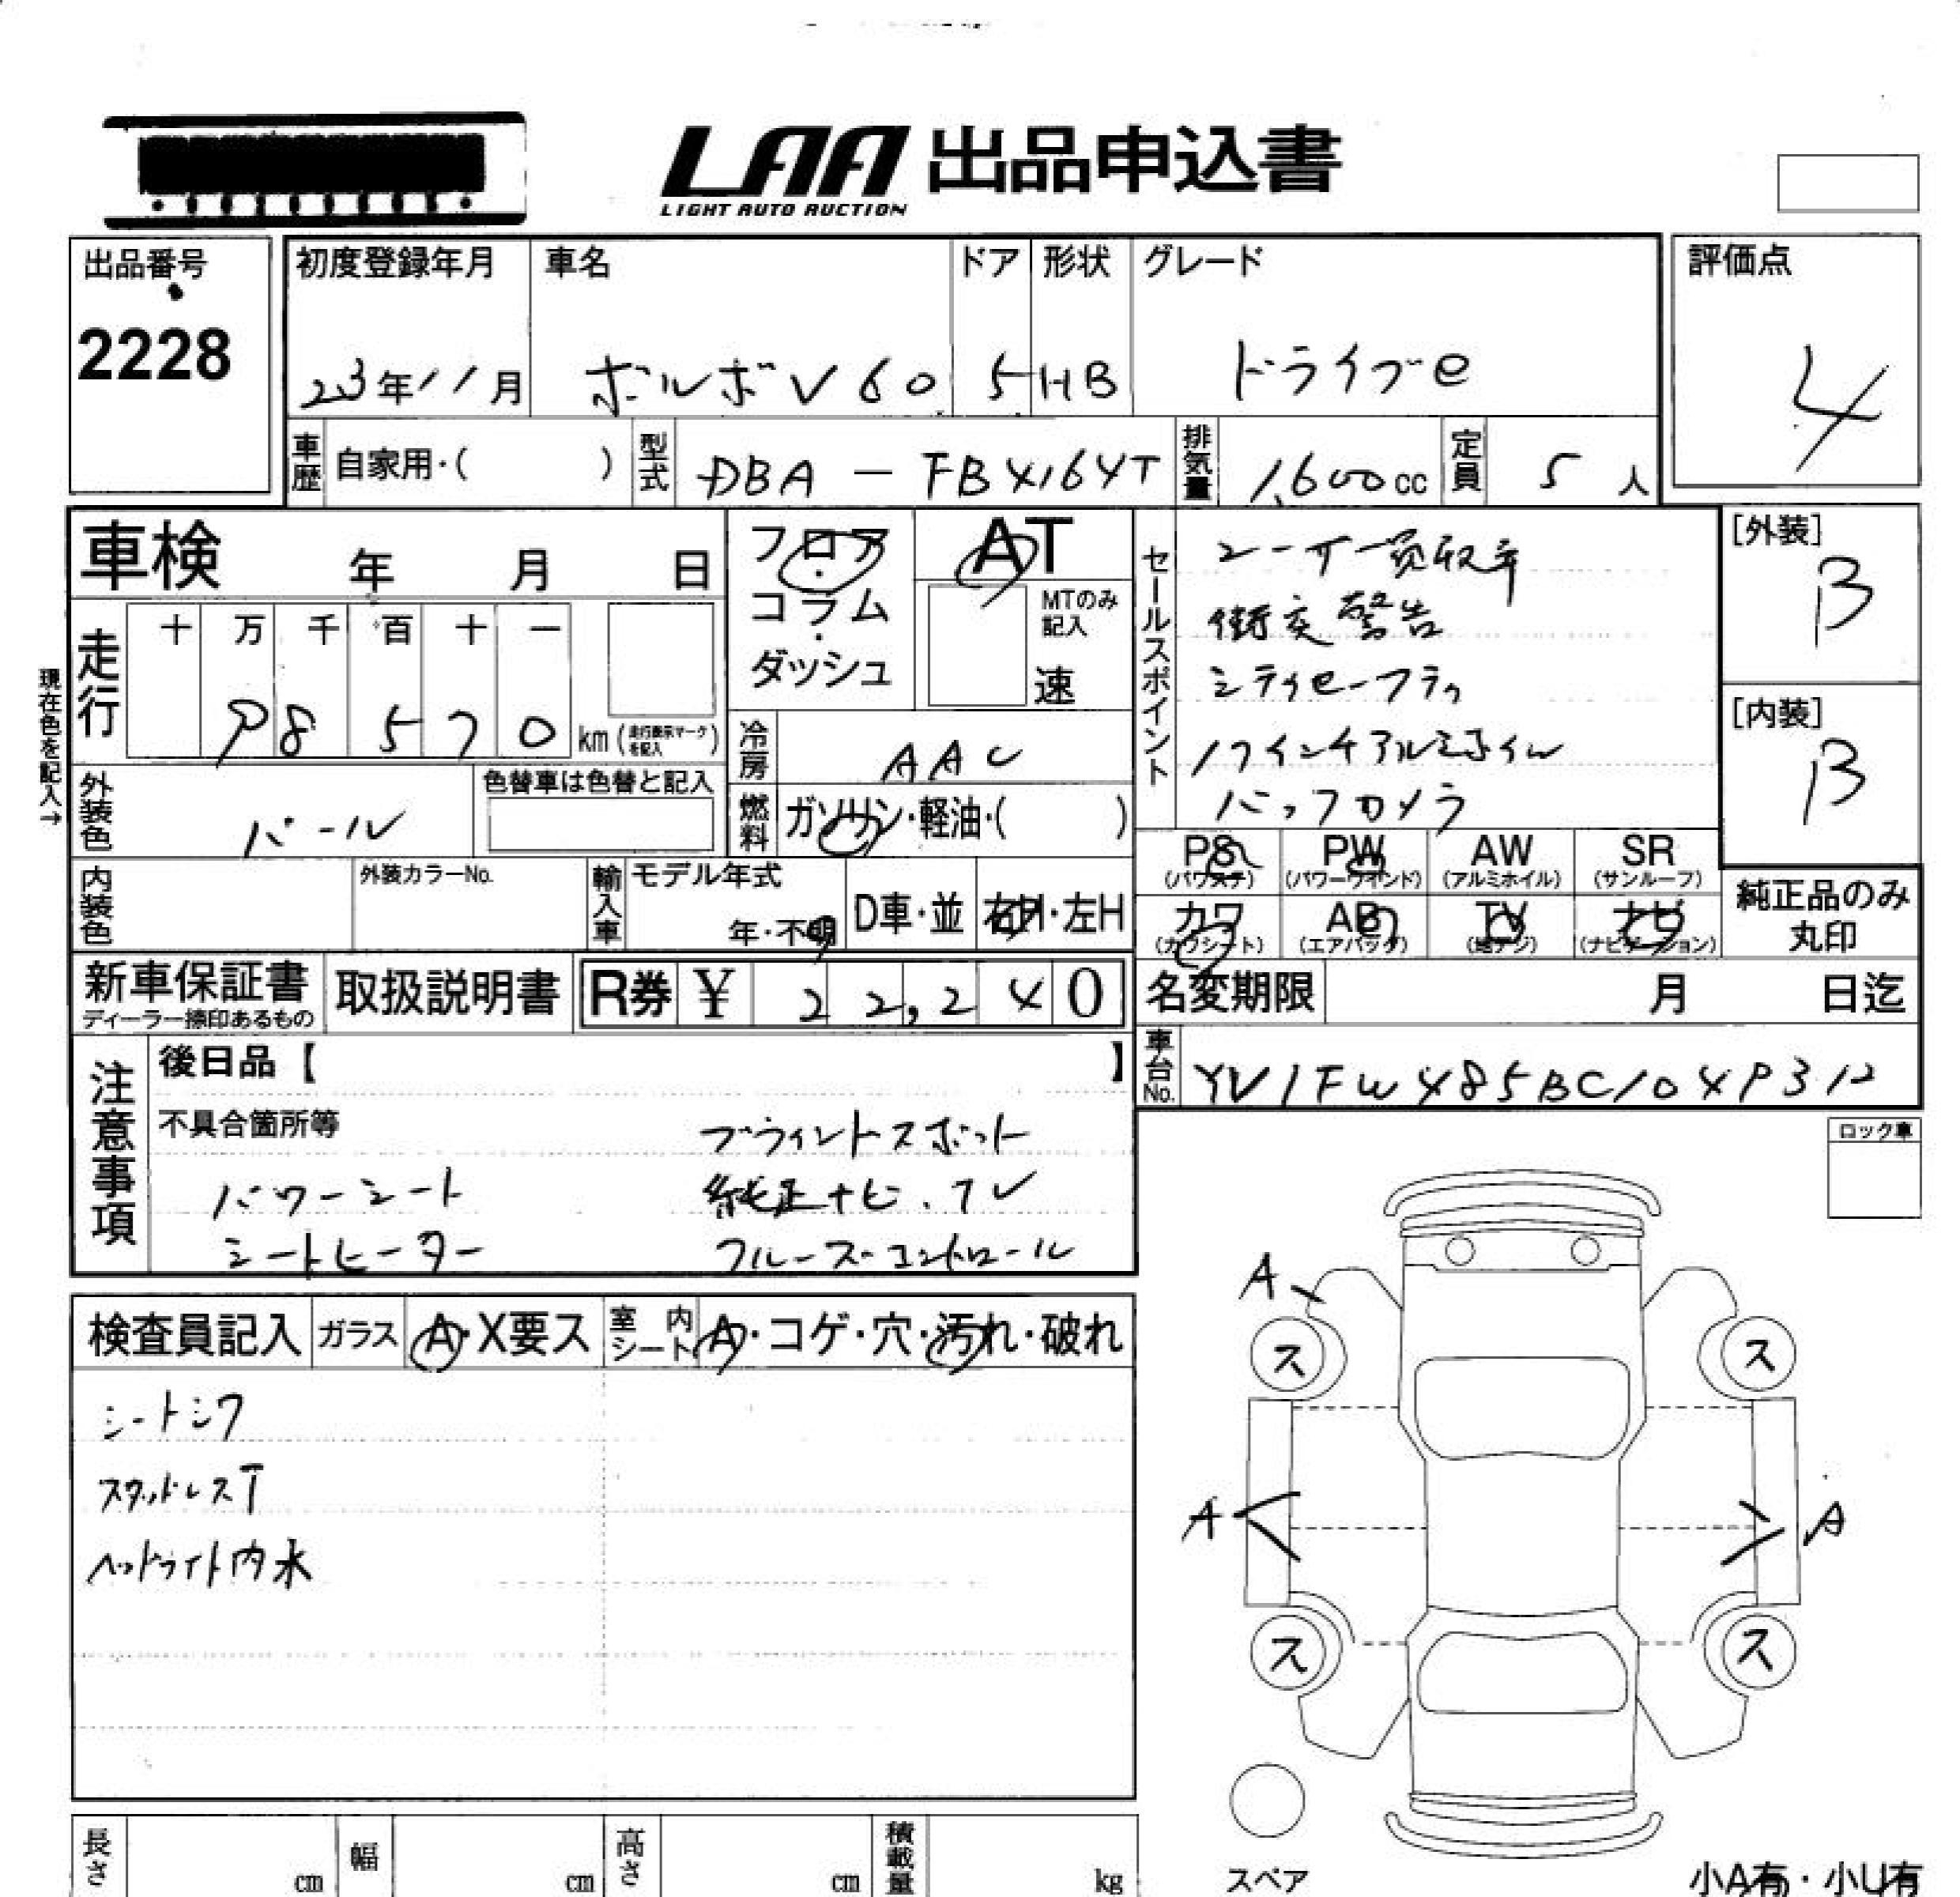 LAA 出品申込書
LIGHT AUTO AUCTION
出品番号
2228
初度登録年月 車名 ドア 形状 グレード
23年11月 ボルボV60 5 HB ドライブe
評価点
4
車歴 自家用・( ) 型式 DBA-FB4164T 排気量 1,600cc 定員 5人
車検 年 月 日
フロア・コラム・ダッシュ
AT
MTのみ記入
速
走行 十 万 千 百 十 一
98570 km(走行表示マークを記入)
現在色を記入→
冷房 AAC
燃料 ガソリン・軽油・( )
外装色 パール
色替車は色替と記入
内装色
外装カラーNo.
輸入車 モデル年式
年・不明 D車・並 右H・左H
セールスポイント
ユーザー買取車
衝突警告
シティセーフティ
17インチアルミホイル
バックカメラ
[外装]
B
[内装]
B
PS (パワステ) PW (パワーウインド) AW (アルミホイル) SR (サンルーフ)
カワ (カワシート) AB (エアバッグ) TV (地デジ) ナビ (ナビゲーション)
純正品のみ丸印
新車保証書
ディーラー捺印あるもの
取扱説明書
R券 ¥ 22,240
名変期限 月 日迄
車台No. YV1FW485BC1049312
注意事項
後日品【 】
不具合箇所等 ブラインドスポット
パワーシート 純正ナビ、テレ
シートヒーター クルーズコントロール
ロック車
検査員記入 ガラス A・X要ス 室内シート A・コゲ・穴・汚れ・破れ
シートシワ
スタッドレスT
ヘッドライト内水
A
ス ス
A A
ス ス
スペア
小A有・小U有
長さ cm 幅 cm 高さ cm 積載量 kg